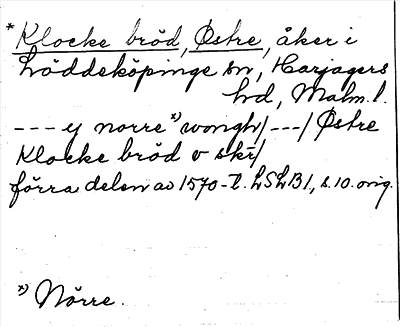 * Klocke bröd, Østre, åker i
Löddeköpinge sn, Harjagers
hd, Malm. l.
--- y norre *) wongh/---/ Østre
Klocke bröd v skř/
förra delen av 1570-t. LSLB1, s. 10. orig.
*) Nörre.